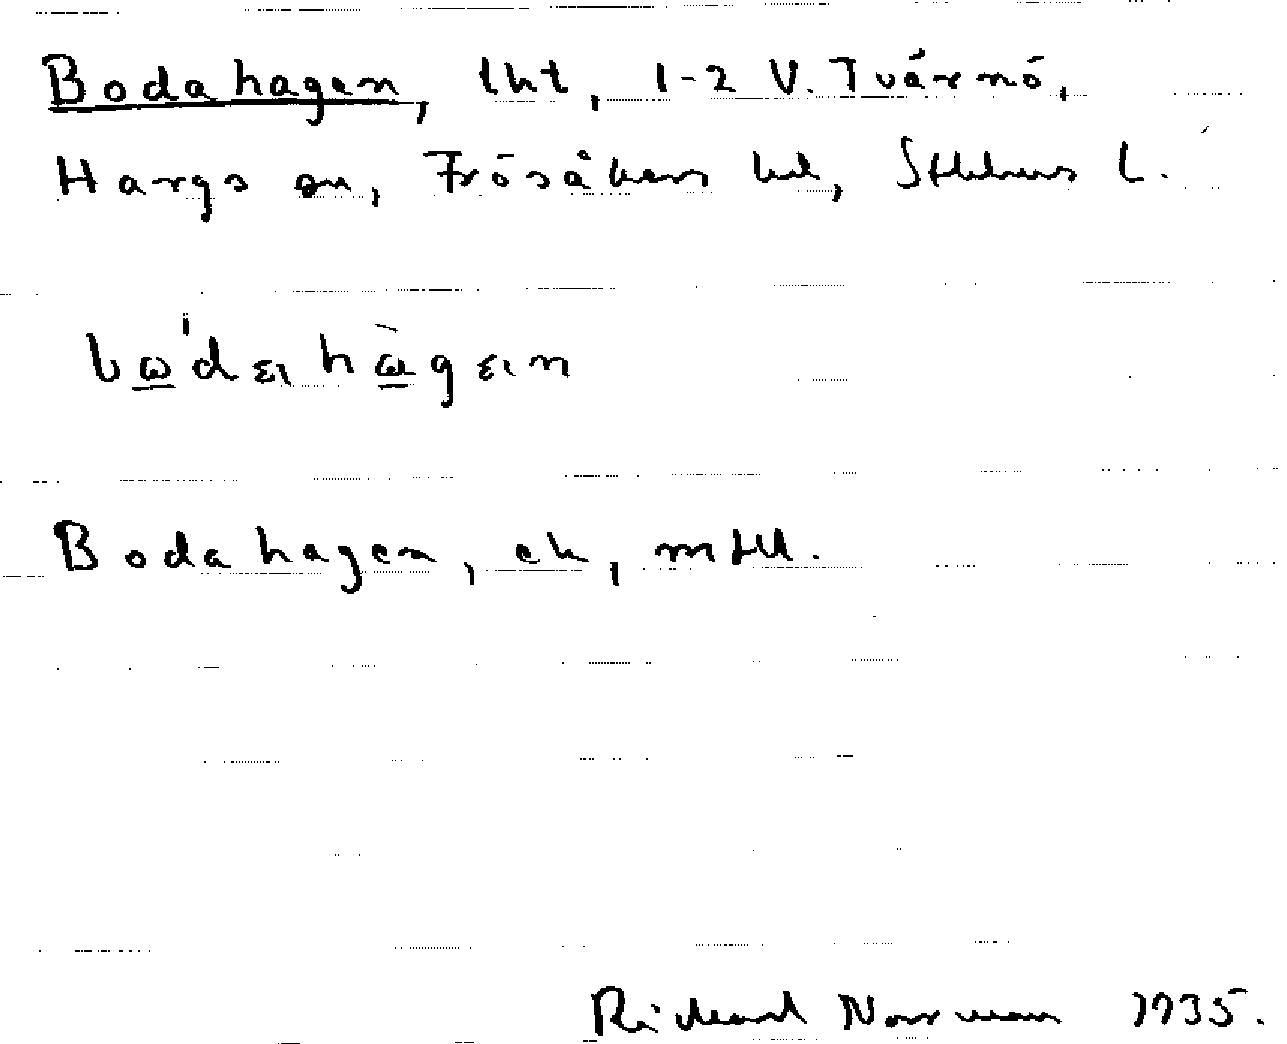 Bodahagen, lht, 1-2 V. Tvärnö,
Hargs sn, Frösåkers hd, Sthlms l.
Bodahagen, ek, mtll.
Richard Norrman 1935.